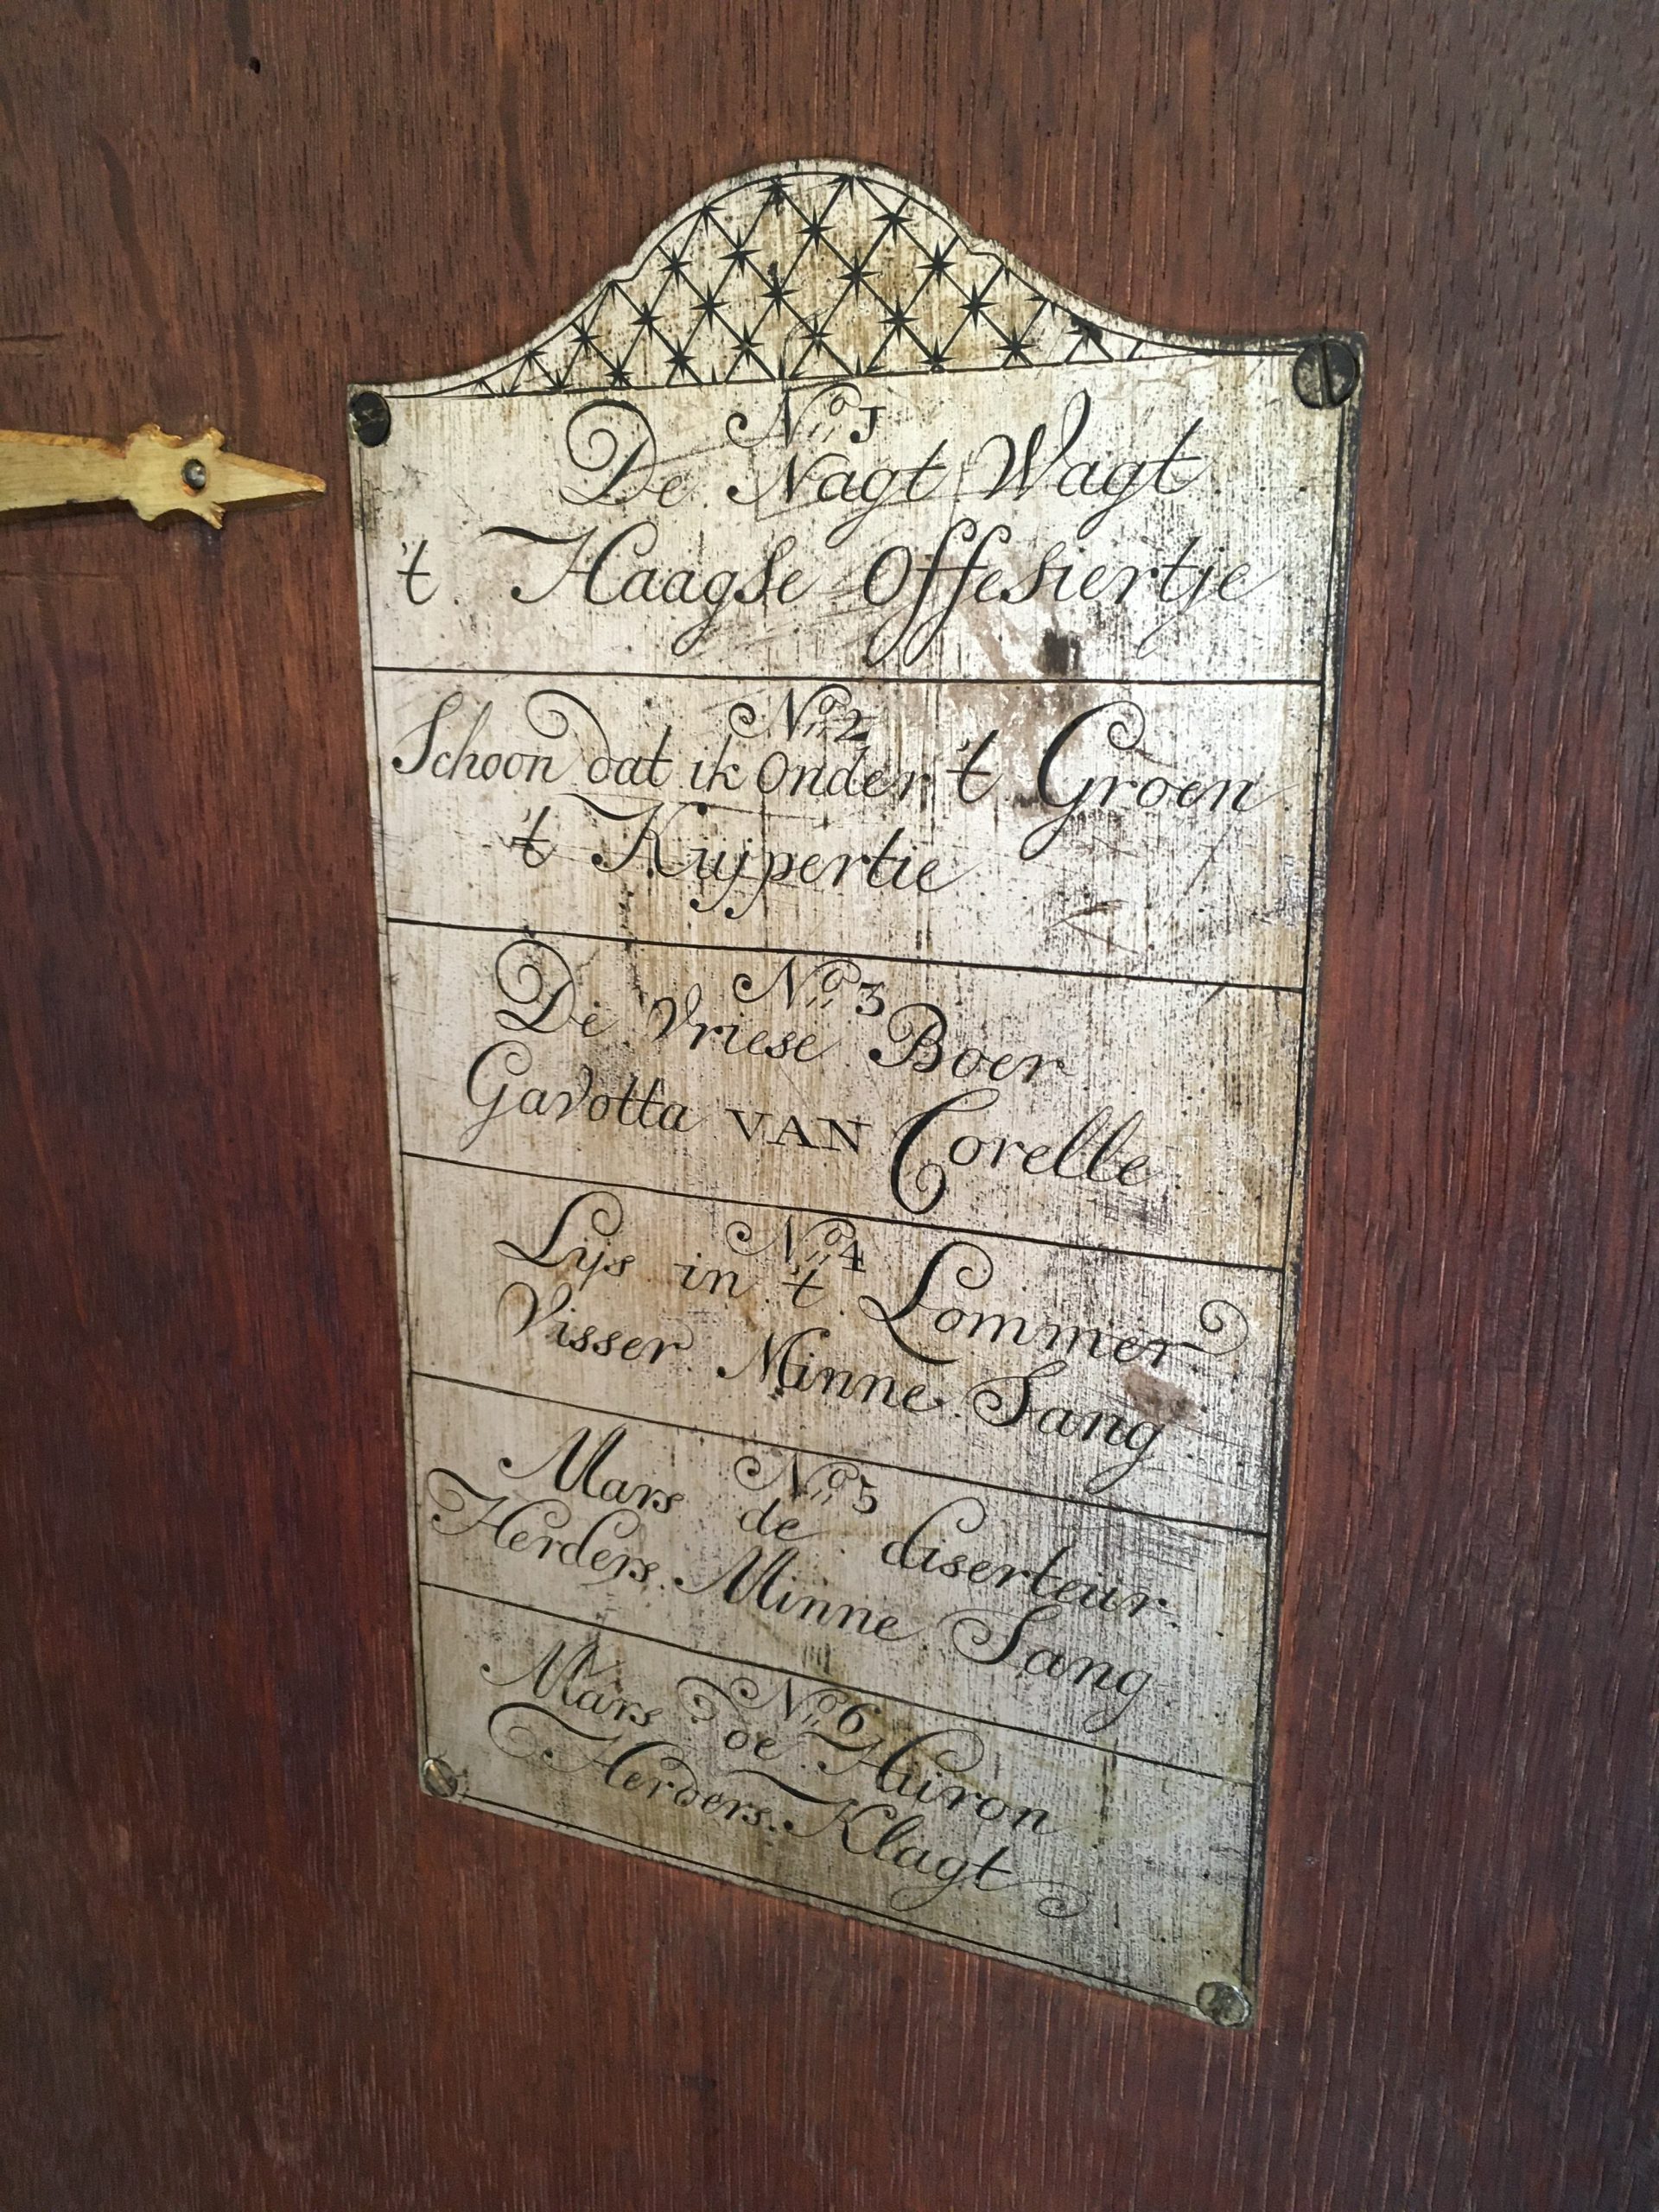 No. 1
De Nagt Wagt
't Haagse Offesiertje
No. 2
Schoon dat ik onder 't Groen
't Kuypertie
No. 3
De Vriese Boer
Gavotta VAN Corelle
No. 4
Lijs in 't Lommer
Visser Minne Sang
No. 5
Mars de diserteur
Herders Minne Sang
No. 6
Mars de Huron
Herders Klagt